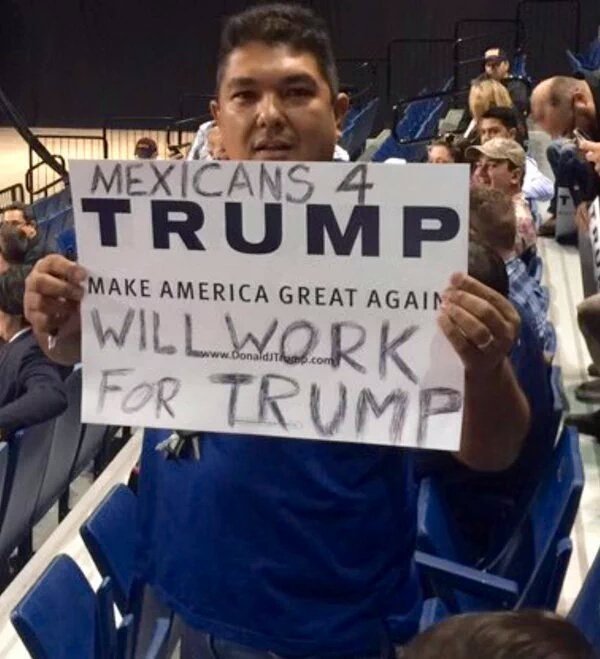 MEXICANS 4
TRUMP
MAKE AMERICA GREAT AGAIN
WILL WORK
www.DonaldJTrump.com
FOR TRUMP